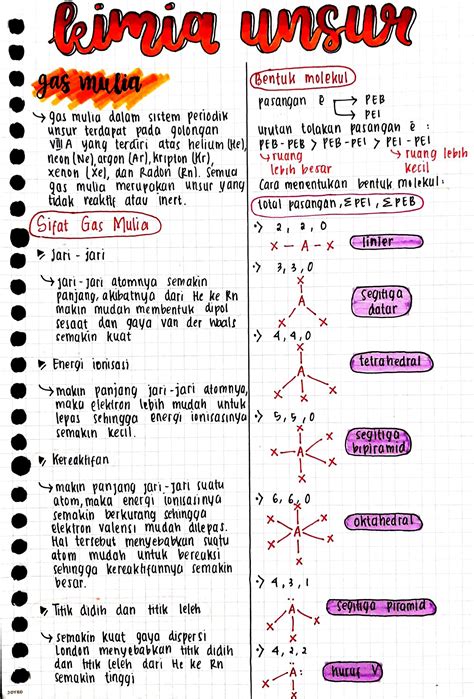 kimia unsur
gas mulia
gas mulia dalam sistem periodik
unsur terdapat pada golongan
VIII A yang terdiri atas helium (He),
neon (Ne), argon (Ar), kripton (Kr),
xenon (Xe), dan Radon (Rn). Semua
gas mulia merupakan unsur yang
tidak reaktif atau inert.
Sifat Gas Mulia
Jari - jari
jari - jari atomnya semakin
panjang, akibatnya dari He ke Rn
makin mudah membentuk dipol
sesaat dan gaya van der Waals
semakin kuat
Energi ionisasi
makin panjang jari - jari atomnya,
maka elektron lebih mudah untuk
lepas sehingga energi ionisasinya
semakin kecil.
Kereaktifan
makin panjang jari - jari suatu
atom, maka energi ionisasinya
semakin berkurang sehingga
elektron valensi mudah dilepas.
Hal tersebut menyebabkan suatu
atom mudah untuk bereaksi
sehingga kereaktifannya semakin
besar.
Titik didih dan titik leleh
semakin kuat gaya dispersi
London menyebabkan titik didih
dan titik leleh dari He ke Rn
semakin tinggi
Bentuk molekul
pasangan ē → PEB
→ PEI
urutan tolakan pasangan ē :
PEB - PEB > PEB - PEI > PEI - PEI
ruang lebih besar
ruang lebih kecil
Cara menentukan bentuk molekul:
total pasangan, ΣPEI, ΣPEB
2, 2, 0
X - A - X
linier
3, 3, 0
X
A
X X
segitiga
datar
4, 4, 0
X
A
X X X
tetrahedral
5, 5, 0
X X
X - A
X X
segitiga
bipiramid
6, 6, 0
X
X X
A
X X
X
oktahedral
4, 3, 1
A
X X X
segitiga piramid
4, 2, 2
A
X X
huruf V